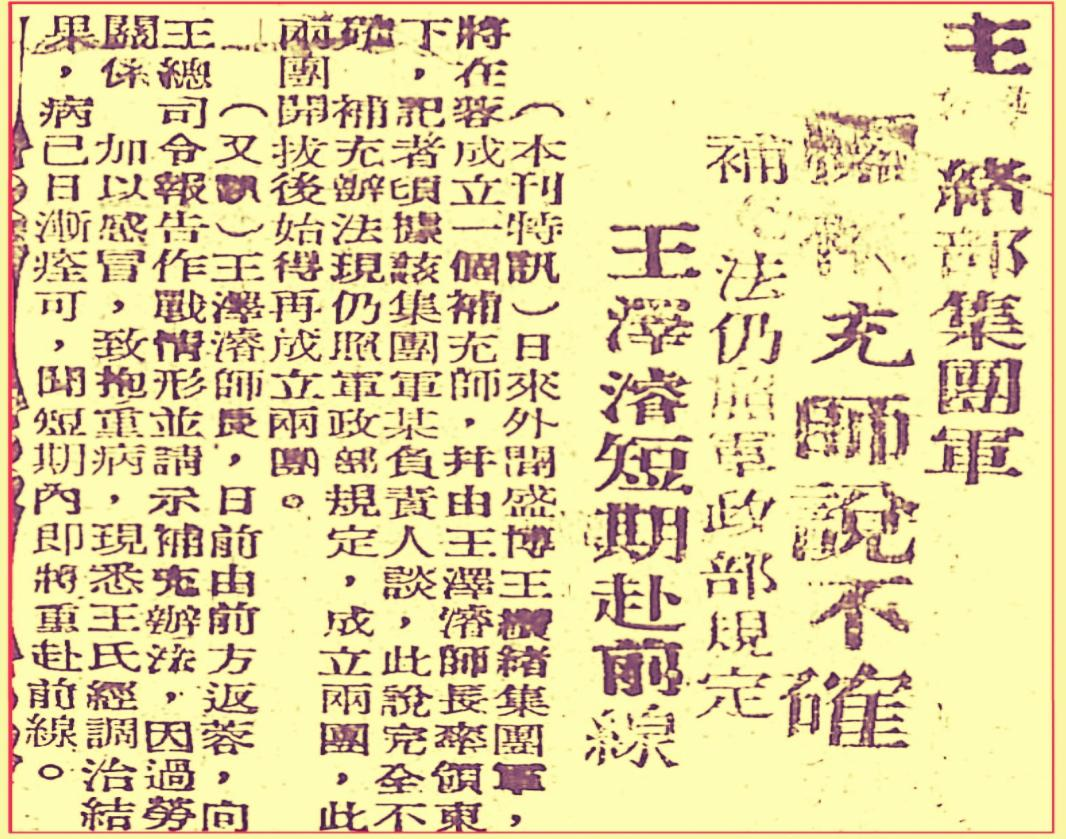 王緒部集團軍
充師說不確
補法仍照軍政部規定
王澤濬短期赴前線
（本刊特訊）日來外間盛博王纘緒集團軍，
將在蓉成立一個補充師，并由王澤濬師長率領東
下，記者頃據該集團軍某負責人談，此說完全不
確　補充辦法現仍照軍政部規定，成立兩團，此
兩團開拔後始得再成立兩團。
（又訊）王澤濬師長，日前由前方返蓉，向
王總司令報告作戰情形並請示補充辦法，因過勞
關係　加以感冒，致抱重病，現悉王氏經調治結
果，病已日漸痊可，聞短期內即將重赴前線。